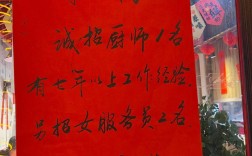 诚招厨师1名
有七年以上工作经验
另招女服务员2名